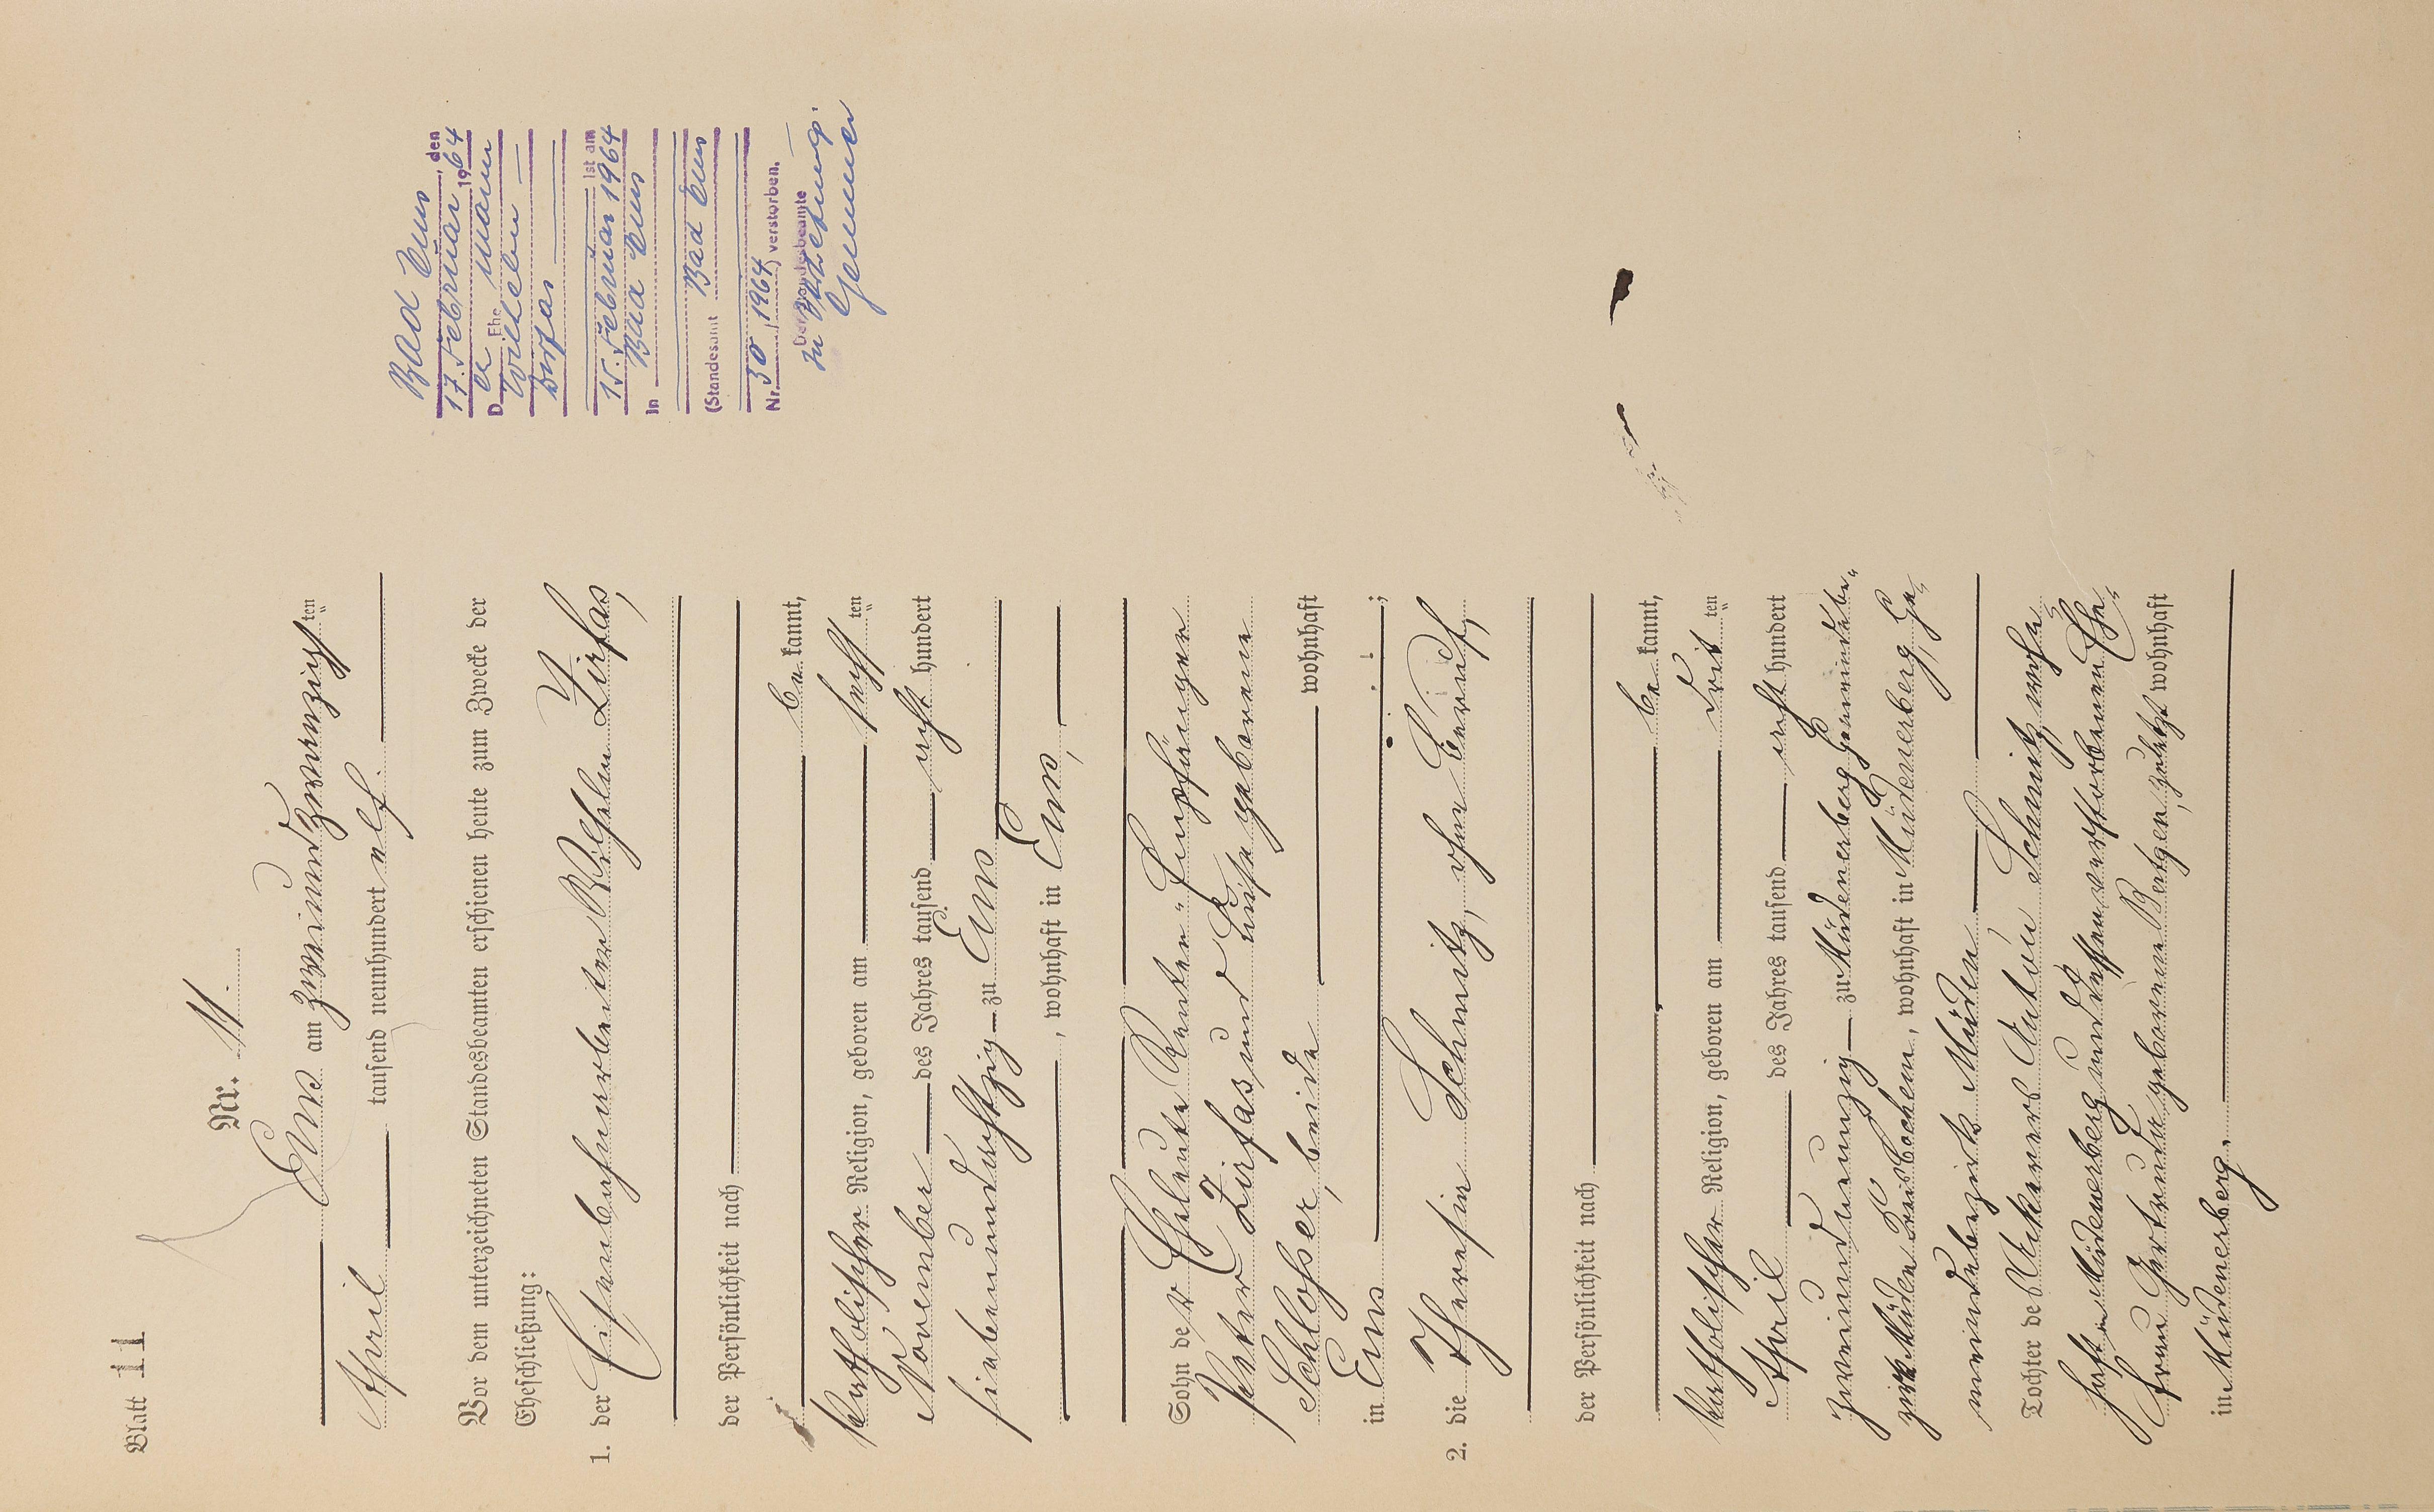 Blatt 11
Nr. 11.
Ems am zweiundzwanzigsten
April tausend neunhundert elf.
Vor dem unterzeichneten Standesbeamten erschienen heute zum Zwecke der
Eheschließung:
1. der Eisenbahnarbeiter Wilhelm Zirfas,
der Persönlichkeit nach
be kannt,
katholischer Religion, geboren am sechsten
November des Jahres tausend acht hundert
siebenundachtzig zu Ems
, wohnhaft in Ems,
Sohn der Eheleute Renten-Empfänger
Peter Zirfas und Luise geborene
Schlosser, beide wohnhaft
in Ems ;
2. die Theresia Schmitz, ohne Beruf,
der Persönlichkeit nach
be kannt,
katholischer Religion, geboren am dritten
April des Jahres tausend acht hundert
zweiundneunzig zu Müdenerberg Gemeindebe-
zirk Müden Kreis Cochem, wohnhaft in Müdenerberg, Ge-
meindebezirk Müden
Tochter des Ackerers Anton Schmitz wohn-
haft in Müdenerberg und dessen verstorbenen Ehe-
frau Gertrud geborene, zuletzt wohnhaft
in Müdenerberg.
Bad Ems, den
17. Februar 1964
Der Ehemann
Wilhelm
Zirfas
ist am
15. Februar 1964
in Bad Ems
(Standesamt Bad Ems
Nr. 30, 1964) verstorben.
Der Standesbeamte
In Vertretung.